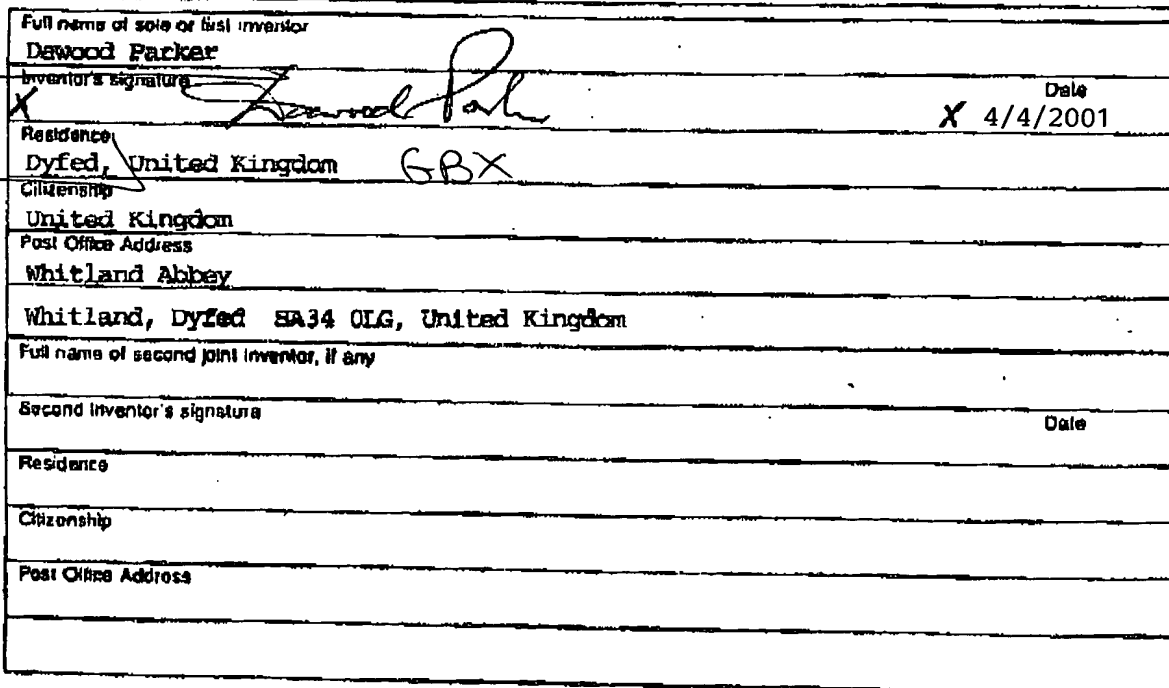 Full name of sole or first inventor
Dawood Parker
Inventor's signature
Date
X Dawood Parker X 4/4/2001
Residence
Dyfed, United Kingdom GBX
Citizenship
United Kingdom
Post Office Address
Whitland Abbey
Whitland, Dyfed SA34 0LG, United Kingdom
Full name of second joint inventor, if any
Second inventor's signature Date
Residence
Citizenship
Post Office Address